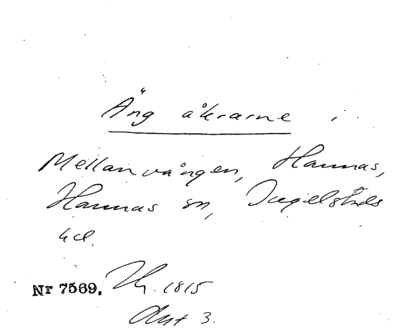 Äng åkrarne i
Mellanvången, Hannas,
Hannas sn, Ingelstads
hd.
Nr 7569. Ur. 1815
Akt 3.